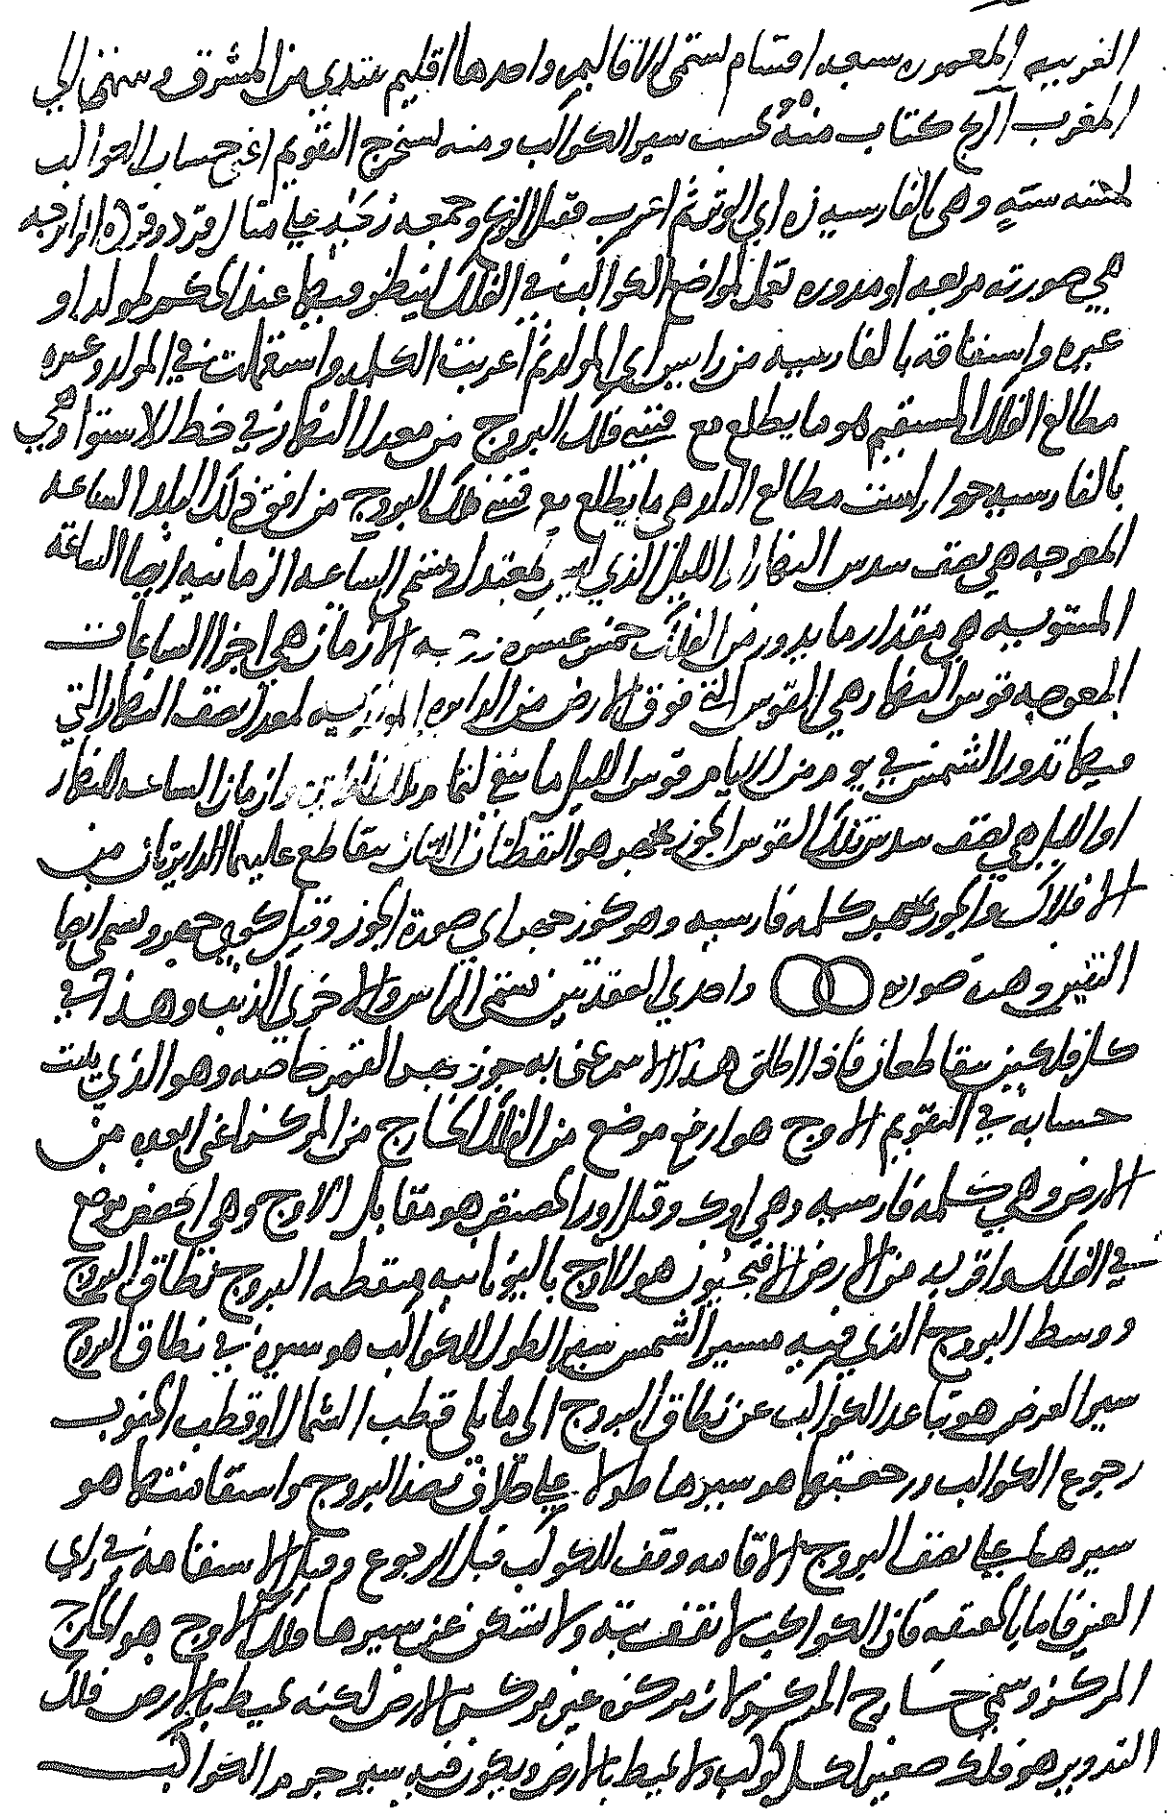 الغربيه المعموره سبعه اقسام تسمى الاقاليم واحدها اقليم يبتدي من المشرق وينتهي الي
المغرب الزيج كتاب منه يحسب سير الكواكب ومنه يستخرج التقويم اعني حساب الكواكب
لسنه سنة وهي بالفارسيه زه اي الوتر ثم اعرب فقيل الزيج وجمعه زيجه علي مثال قرد وقردة الزايرجه
هي صورته مربعه او مدوره تعمل لمواضع الكواكب في الفلك لينظر فيها عند الحكم لمولد او
غيره واشتقاقه بالفارسيه من زايش اي المولد ثم اعربت الكلمه واستعملت في المولد وغيره
مطالع الفلك المستقيم هو ما يطلع مع قسي فلك البروج من معدل النهار في خط الاستوا وهي
بالفارسيه راست مطالع البلد هي ما يطلع مع قسي فلك البروج من افق ذلك البلد الساعه
المعوجه هي نصف سدس النهار او الليل الذي ليس بمعتدل وتسمى الساعه الزمانيه ايضا الساعة
المستويه هي مقدار ما يدور من الفلك خمس عشره الازمان هي اجزا الساعات
المعوجه قوس النهار هي القوس التي فوق الارض من الدايره الموازيه لمعدل نصف النهار التي
فيها تدور الشمس في يوم من الايام قوس الليل ما بقي ازمان الساعه للنهار
او الليل هي نصف سدس تلك القوس الجوزهر هو النقطتان اللتان يتقاطع عليهما الدايرتان من
الافلاك والجوزهر كلمه فارسيه وهو كوز چهر اي صورة الجوز وقيل كوي چهر ويسمى ايضا
التنين وهذه صورته واحدي العقدتين تسمى الراس والاخرى الذنب وهذا في
كل فلكين يتقاطعان فاذا اطلق هذا الاسم عني به جوزهر القمر خاصه وهو الذي يثبت
حسابه في التقويم الاوج هو ارفع موضع من الفلك الخارج من المركز اعني ابعد من
الارض وهي كلمه فارسيه وهي اوك وقيل اورا الحضيض هو مقابل الاوج وهي اخفض موضع
في الفلك واقربه من الارض الافيجيون هو الاوج باليونانيه منطقه البروج نطاق البروج
ووسط البروج الذي فيه مسير الشمس سير الطول للكواكب هو سيره في نطاق البروج
سير العرض هو تباعد الكواكب عن نطاق البروج الى ما يلي قطب الشمال او قطب الجنوب
رجوع الكواكب ورجعتها هو سيرها طولا علي خلاف نضد البروج واستقامتها هو
سيرها علي نضد البروج الاقامه وقف الكوكب قبل الرجوع وقبل الاستقامة في راي
العين فاما بالحقيقه فان الكواكب لا تقف بتة ولا تسكن عن سيرها فلك الاوج هو الخارج
المركز وسمي خارج المركز لان مركزه غير مركز الارض لكنه محيط بالارض فلك
التدوير هو فلك صغير لكل كوكب ولا يحيط بالارض ويكون فيه سير جرم الكواكب